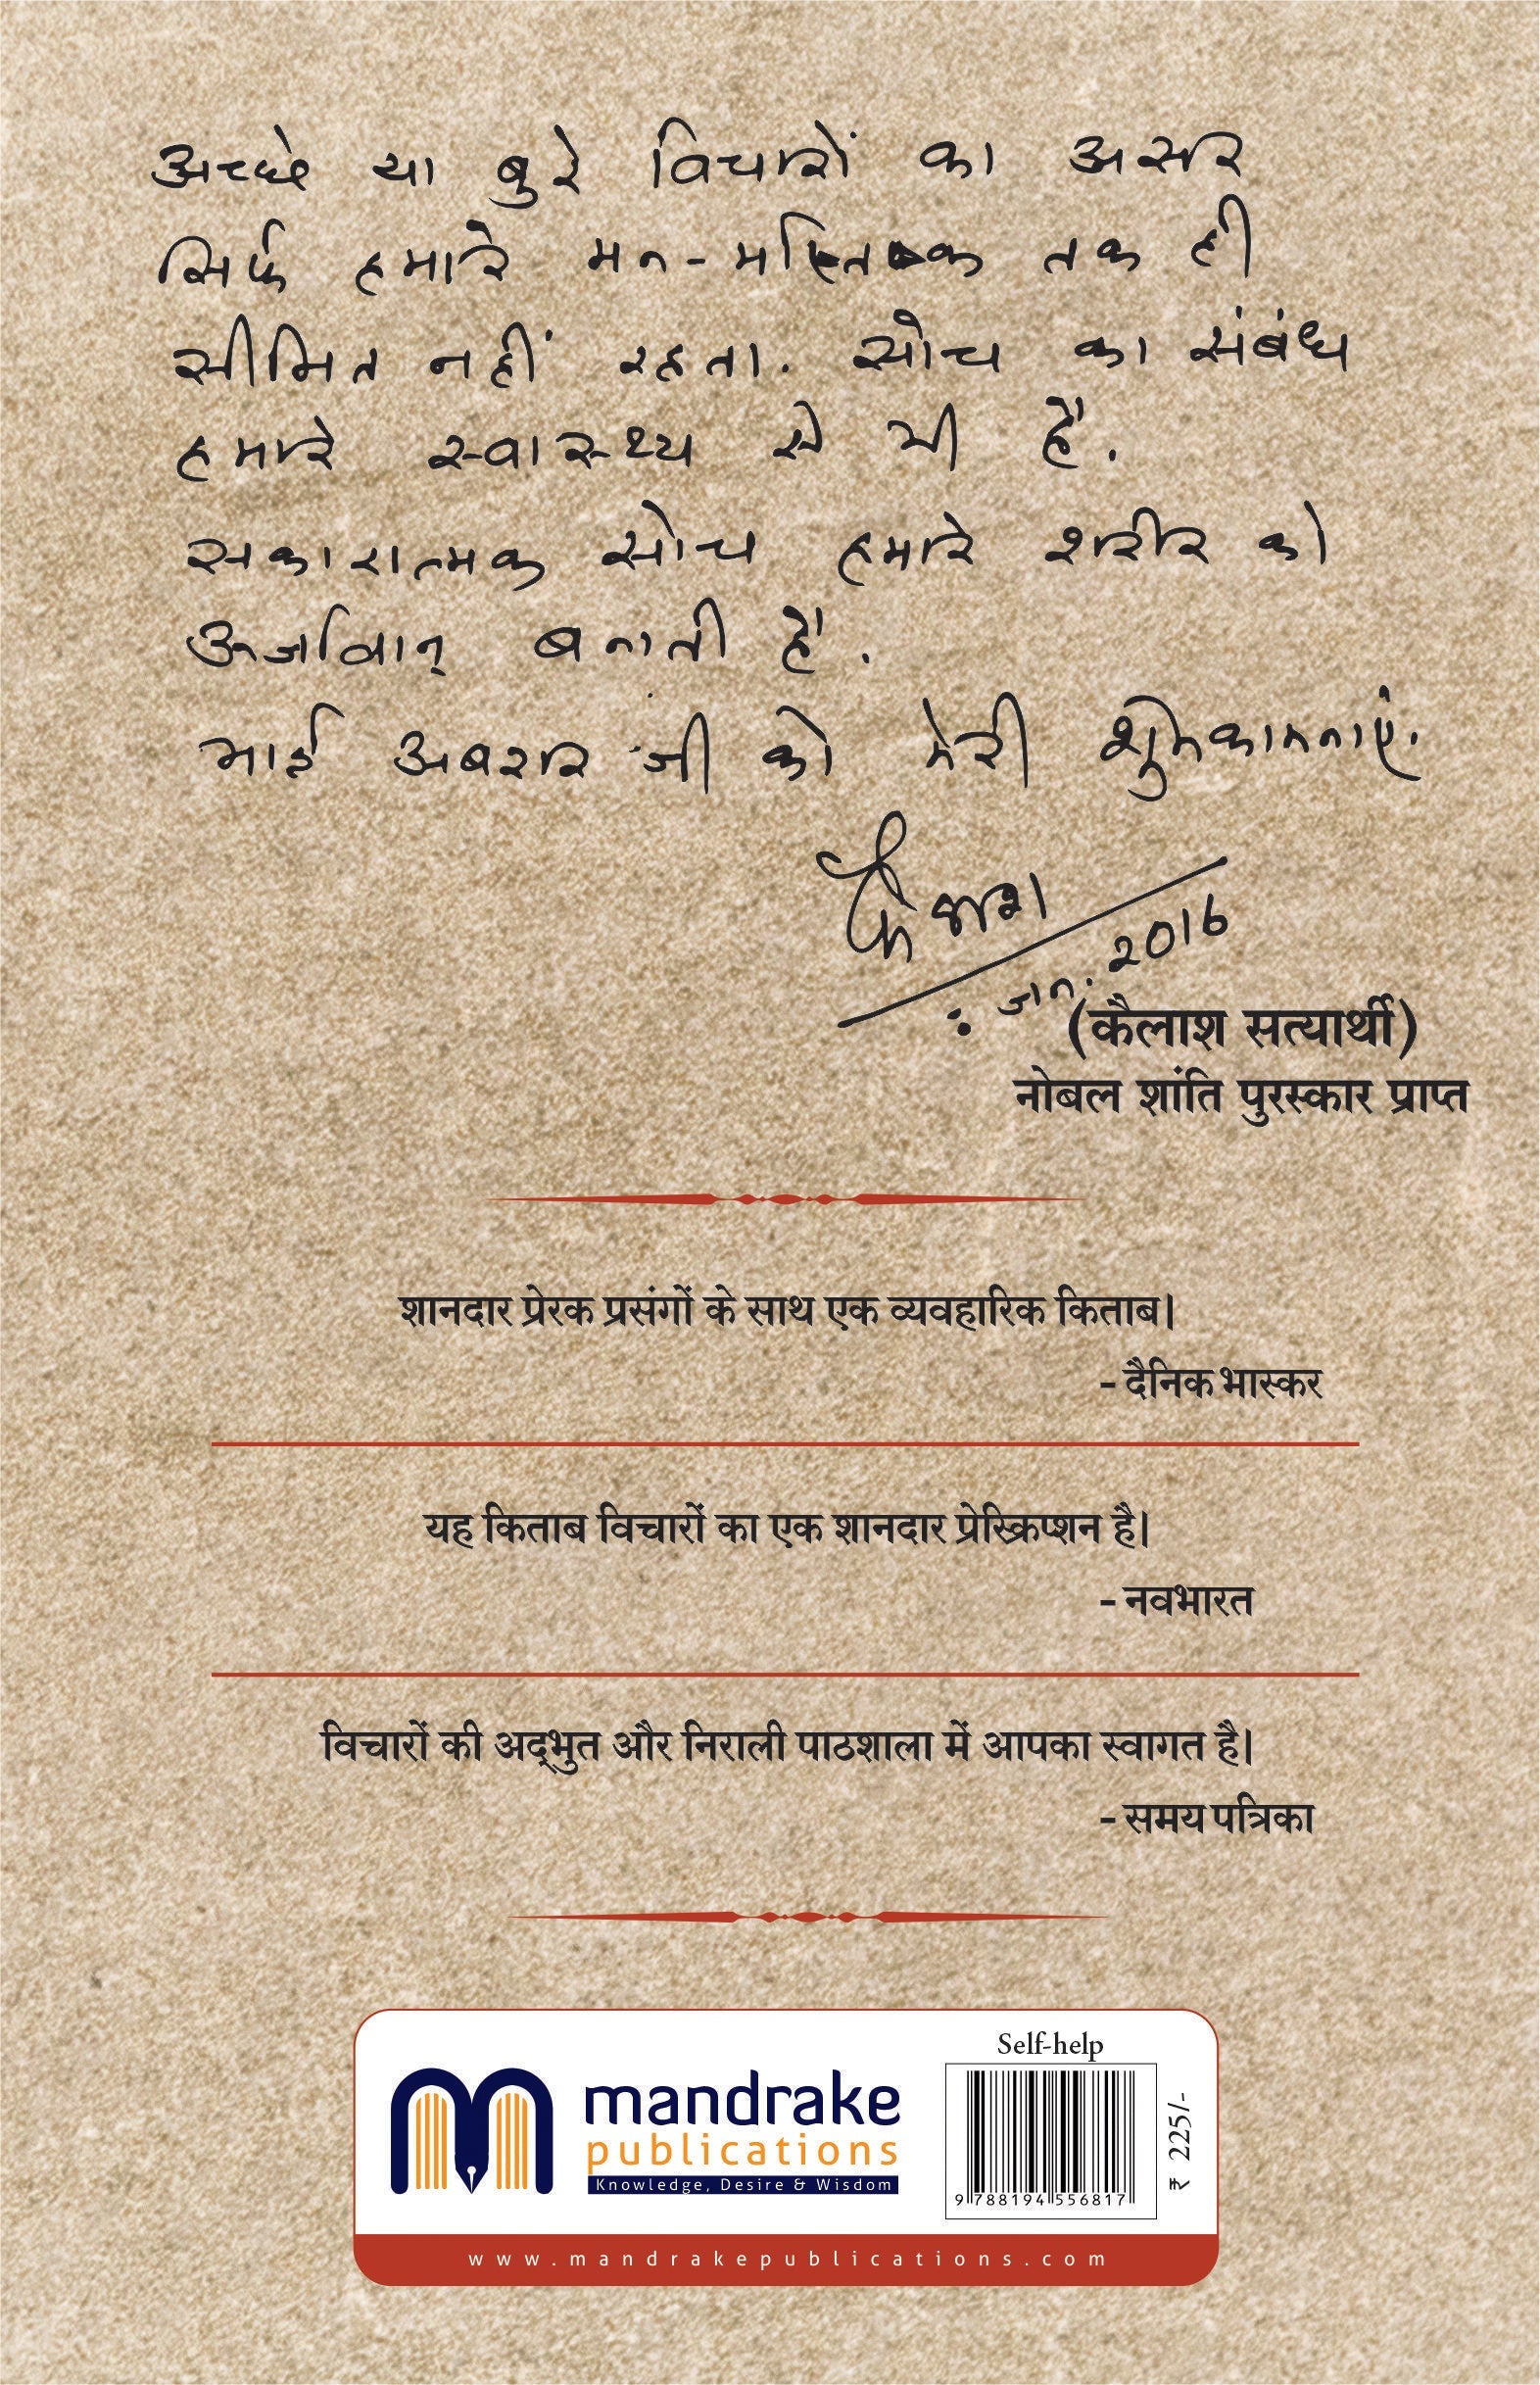 अच्छे या बुरे विचारों का असर
सिर्फ हमारे मन-मस्तिष्क तक ही
सीमित नहीं रहता. सोच का संबंध
हमारे स्वास्थ्य से भी है.
सकारात्मक सोच हमारे शरीर को
ऊर्जावान् बनाती है.
भाई अबरार जी को मेरी शुभकामनाएं.
कैलाश
जन. 2016
(कैलाश सत्यार्थी)
नोबल शांति पुरस्कार प्राप्त
शानदार प्रेरक प्रसंगों के साथ एक व्यवहारिक किताब।
- दैनिक भास्कर
यह किताब विचारों का एक शानदार प्रेस्क्रिप्शन है।
- नवभारत
विचारों की अद्‌भुत और निराली पाठशाला में आपका स्वागत है।
- समय पत्रिका
Self-help
mandrake
publications
Knowledge, Desire & Wisdom
9 788194 556817
₹ 225/-
www.mandrakepublications.com